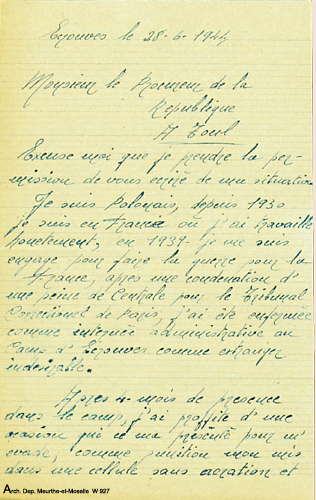 Ecrouves le 28-6-1944
Monsieur le Procureur de la
Republique
A Toul
Excuse moi que je prendre la per-
mission de vous ecrire de ma situation
Je suis Polonais, depuis 1930
je suis en France où j'ai travaillé
honetement, en 1939 je me suis
engagé pour faire la guerre pour la
France, apres une condenation d'
une peine de Centrale par le Tribunal
Correcionel de Paris, j'ai été enfermée
comme internée administrative au
Camp d'Ecrouves comme etranger
indesirable.
Apres 4 mois de presence
dans le camp, j'ai profité d'une
ocasion qui ce ma presenté pour m'
evadé, comme punition mon mis
dans une cellule sans aeration et
Arch. Dép. Meurthe-et-Moselle W 927